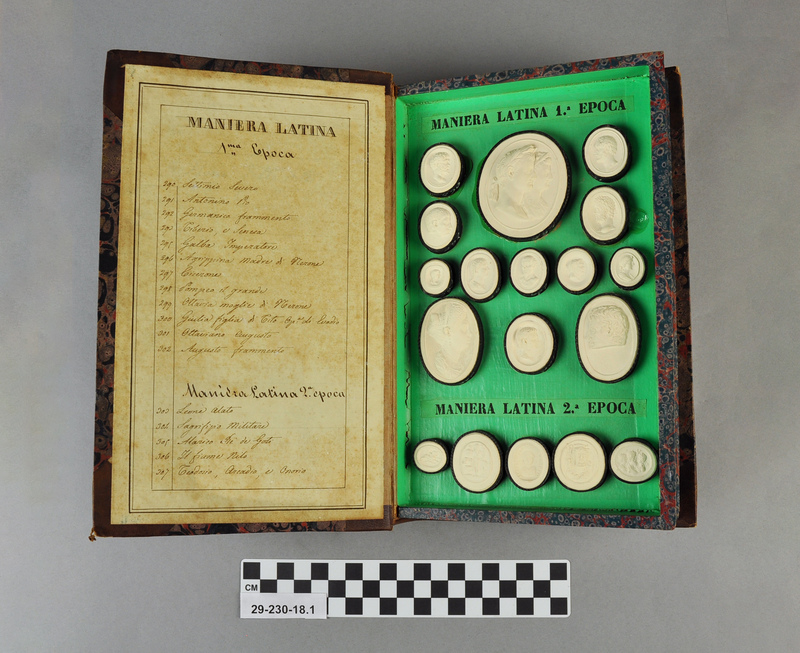 MANIERA LATINA
1.ma Epoca
290 Settimio Severo
291 Antonino Pio
292 Germanico frammento
293 Tiberio, e Seneca
295 Galba Imperatore
296 Agrippina Madre di Nerone
297 Cicerone
298 Pompeo il grande
299 Ottavia moglie di Nerone
300 Giulia figlia di Tito. Op.ra di Evodio
301 Ottaviano Augusto
302 Augusto frammento
Maniera Latina 2.a epoca
303 Leone alato
304 Sagrifizio Militare
305 Alarico Rè de Goti
306 Il fiume Nilo
307 Teodosio, Arcadio, e Onorio
MANIERA LATINA 1.a EPOCA
MANIERA LATINA 2.a EPOCA
CM
29-230-18.1